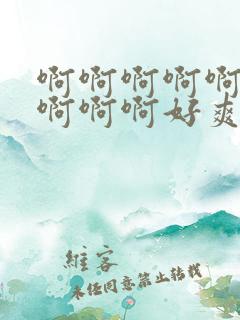 啊啊啊啊啊
啊啊啊好爽
維客
未任同意禁止转载